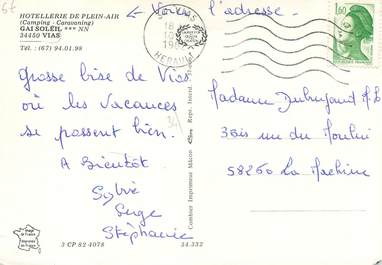 HOTELLERIE DE PLEIN-AIR
(Camping - Caravaning)
GAI SOLEIL *** NN
34450 VIAS
Tél. : (67) 94.01.98
l'adresse.
VIAS
HERAULT
1,60
Grosse bise de Vias
où les Vacances
se passent bien.
A Bientôt
Sylvie
Serge
Stéphanie
Madame
3bis rue du Moulin
58260 La Machine
Combier Imprimeur Mâcon
Rept. Interd.
3 CP 82 4078
34.332